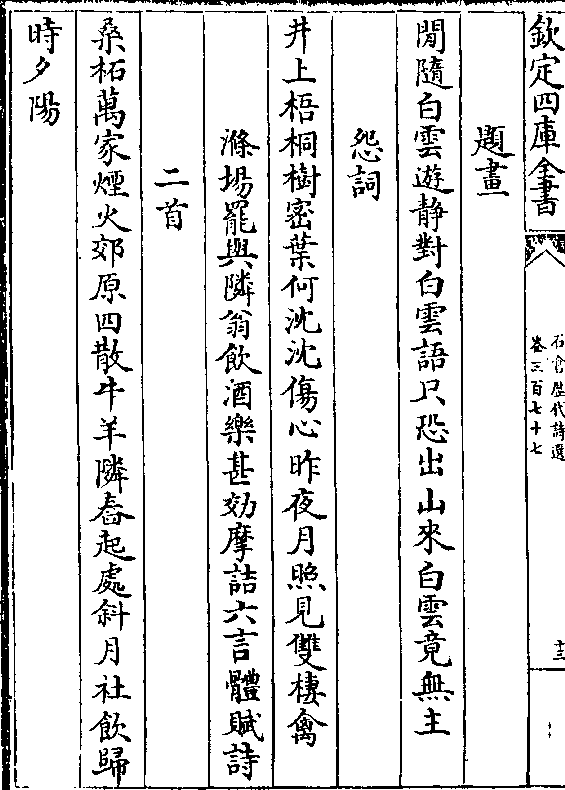 欽定四庫全書
石倉歷代詩選
卷三百七十七
十三
題畫
閒隨白雲遊静對白雲語只恐出山來白雲竟無主
怨詞
井上梧桐樹密葉何沈沈傷心昨夜月照見雙棲禽
滌場罷與隣翁飲酒樂甚効摩詰六言體賦詩
二首
桑柘萬家煙火郊原四散牛羊隣舂起處斜月社飲歸
時夕陽